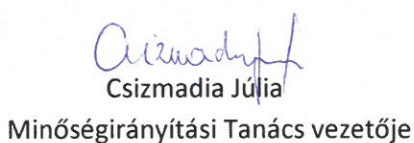 Csizmadia Júlia
Minőségirányítási Tanács vezetője